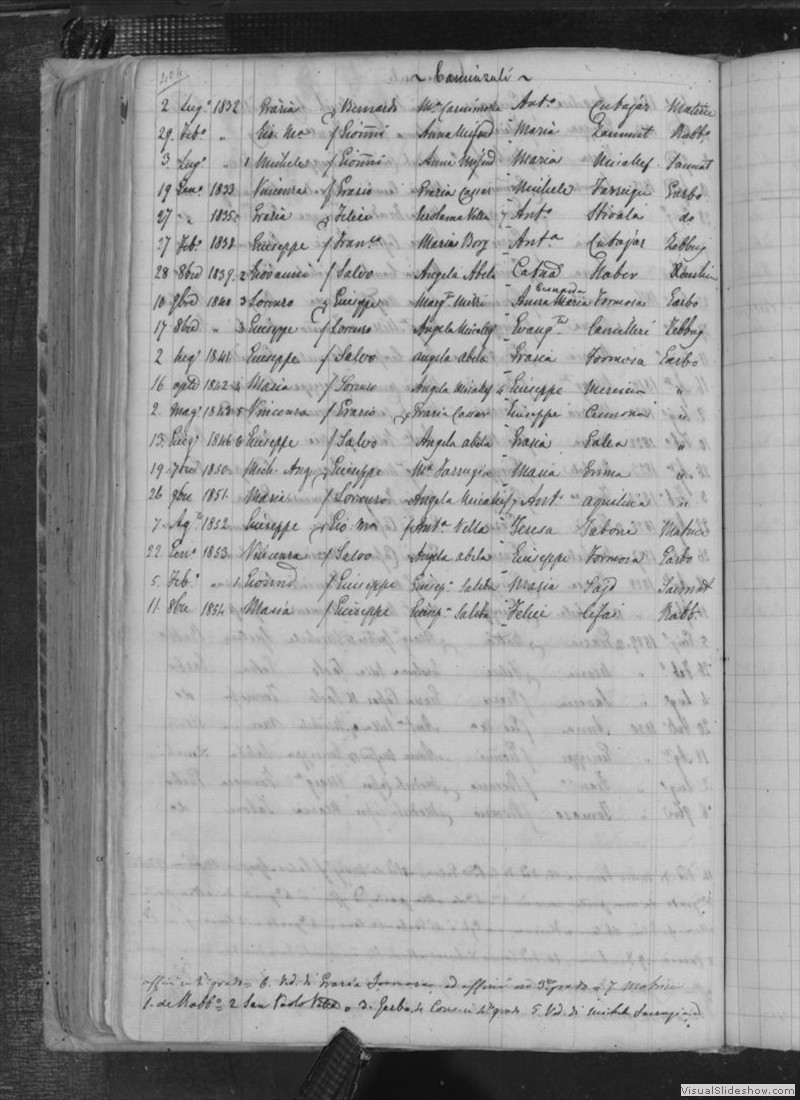 204
~ Caminzuli ~
2 Lug.o 1832 Grazia f Bernardo Ma Anto Cutajar Matrice
29. Feb.o " Gio Ma f Gioñni Anna Mifsud Maria Zammut Rabb.o
3. Lug.o " 1 Michele f Gioñni Anna Mifsud Maria Micalef Sannat
19 Gen.o 1833 Vincenza f Grazio Grazia Cassar Michele Farrugia Garbo
27 " 1835 Grazia f Felice Girolama Vella Anto Stivala do
27 Feb.o 1838 Giuseppe f Fran.co Maria Borg Ant.a Cutajar Zebbug
28 8bre 1839. 2 Giovanni f Salvo Angela Abela Catna
10 9bre 1840 3 Lorenzo f Giuseppe Marg.ta Anna Maria Formosa Garbo
17 8bre " 3 Giuseppe f Lorenzo Angela Micalef Evang.ta Camilleri Zebbug
2 1841. Giuseppe f Salvo angela abela Grazia Formosa Garbo
16 1842 4 Maria f Lorenzo Angela Micalef 4 Giuseppe Mercieca "
2. Mag.o 1843 5 Vincenza f Grazio f Grazia Cassar Giuseppe "
13. 1846 6 Giuseppe f Salvo Angela abela Grazia Galea "
19 7bre 1850. Mich. Ang. f Giuseppe Ma Farrugia Maria Grima "
26 9bre 1851. Maria f Lorenzo Angela Micalef 7 Anto aquilina "
7. Ag.to 1852 Giuseppe f Gio Ma f Ant.a Vella Teresa Tabone Matrice
22. Gen.o 1853 Vincenza f Salvo Angela abela Giuseppe Formosa Garbo
5. Feb.o " 1. Gioanni f Giuseppe Giusep.a Saliba Maria Sajd Sannat
11. 8bre 1854 Maria f Giuseppe Giusep.a Saliba Felice Rabb.
affini in 2o grado = 6. Ved. di Grazia Formosa, ed affini in 3o grado = 7 Matrice
1. de Rabb.o = 2 San Paolo = 3. Garbo 4 Cons. in 4o grado 5. Ved. di Michele Farrugia
VisualSlideshow.com